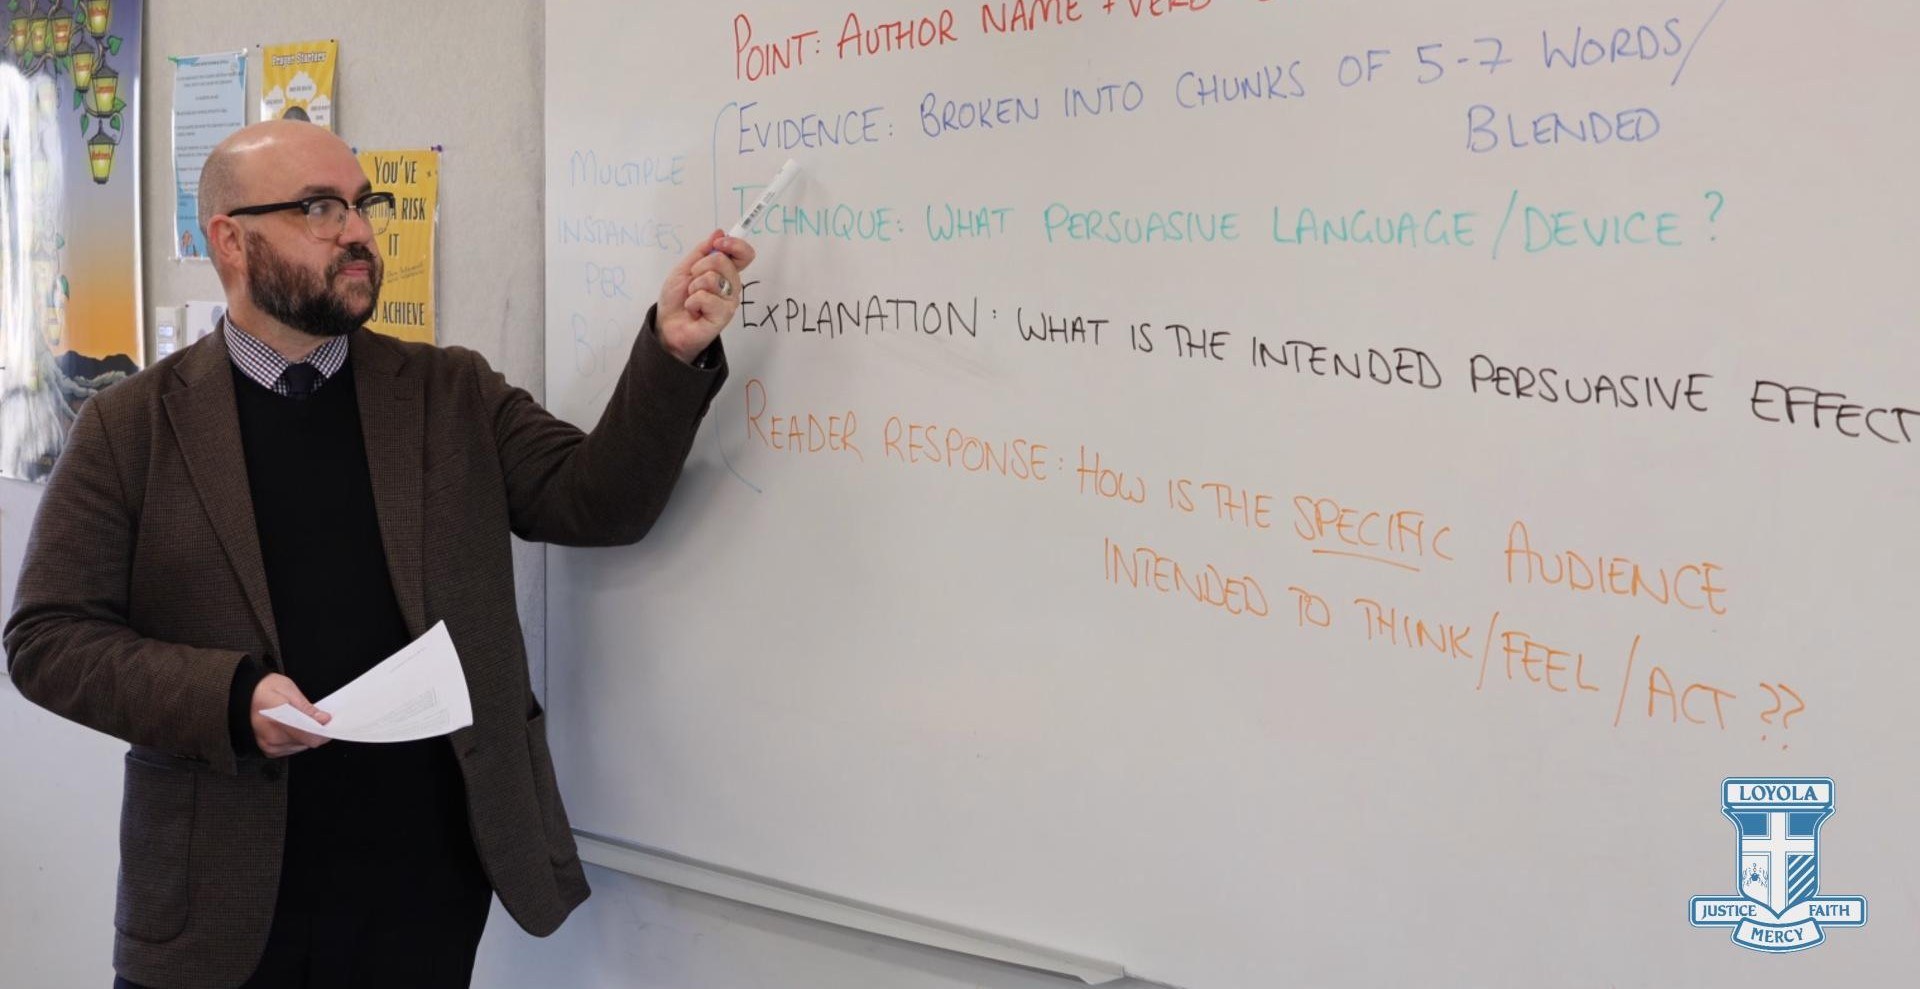 POINT: AUTHOR NAME + VERB
EVIDENCE: BROKEN INTO CHUNKS OF 5-7 WORDS/
BLENDED
TECHNIQUE: WHAT PERSUASIVE LANGUAGE/DEVICE?
EXPLANATION: WHAT IS THE INTENDED PERSUASIVE EFFECT
READER RESPONSE: HOW IS THE SPECIFIC AUDIENCE
INTENDED TO THINK/FEEL/ACT??
MULTIPLE
INSTANCES
PER
Prayer Starters
YOU'VE
RISK
IT
ACHIEVE
LOYOLA
JUSTICE FAITH
MERCY